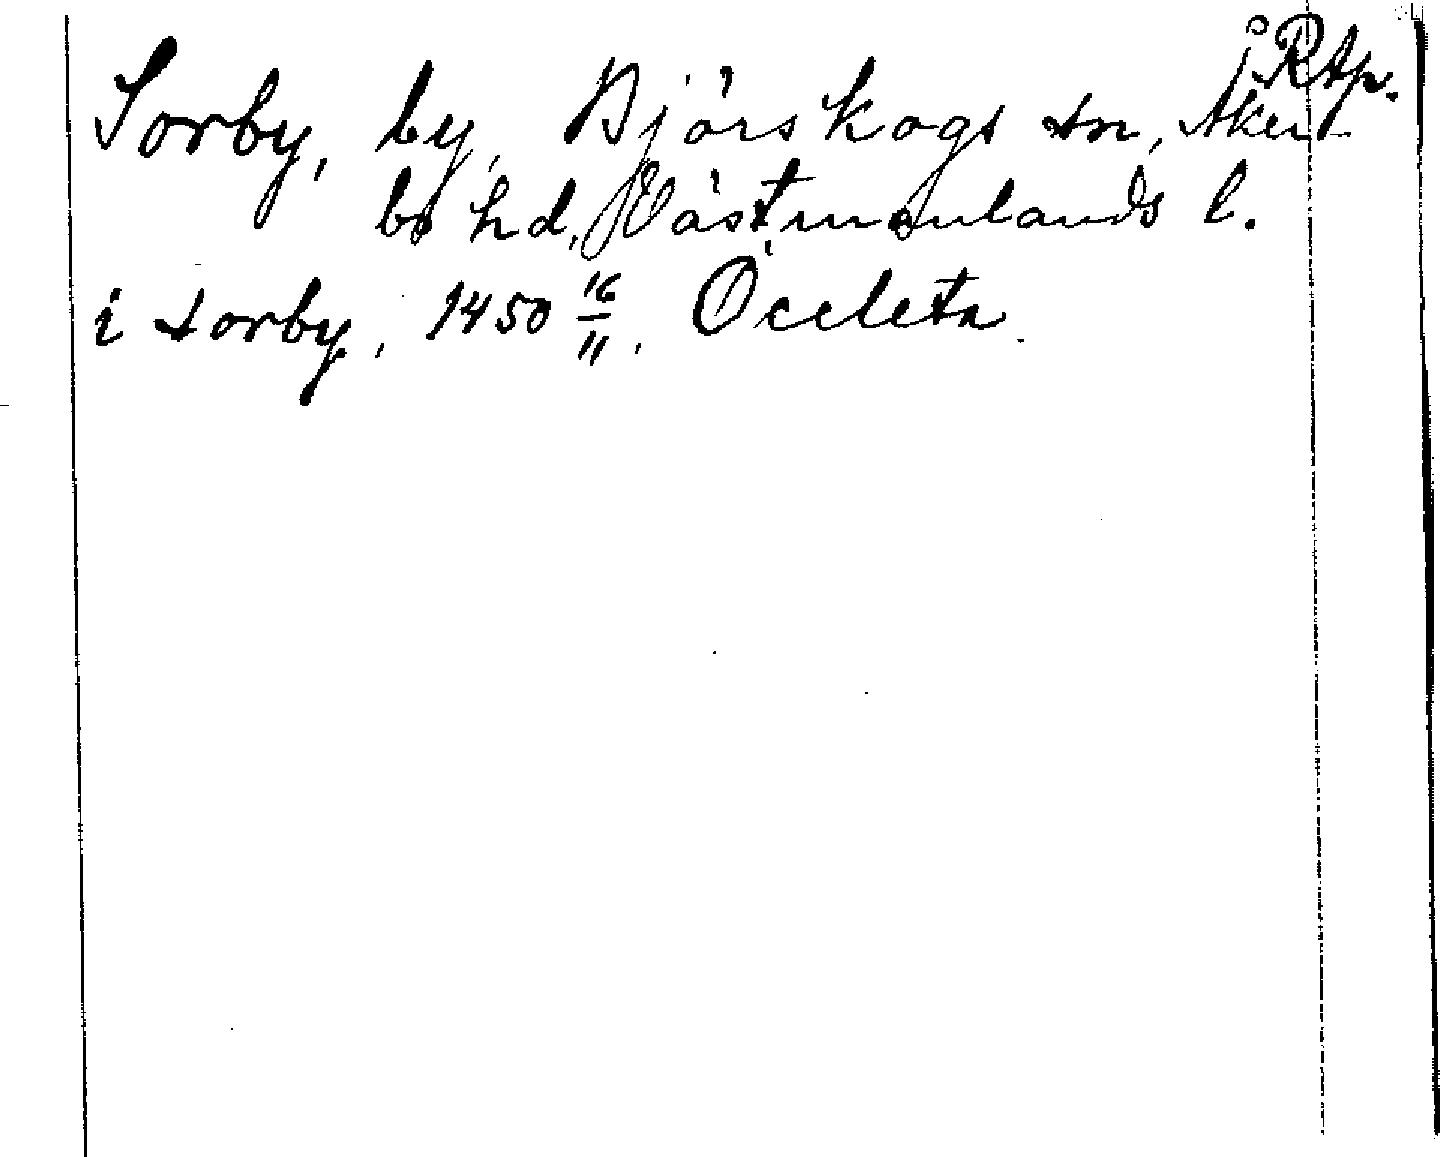 på Rtp.
Sorby, by, Björskogs sn, Åker-
bo hd, Västmanlands l.
i sorby, 1450 16/11, Öceleta